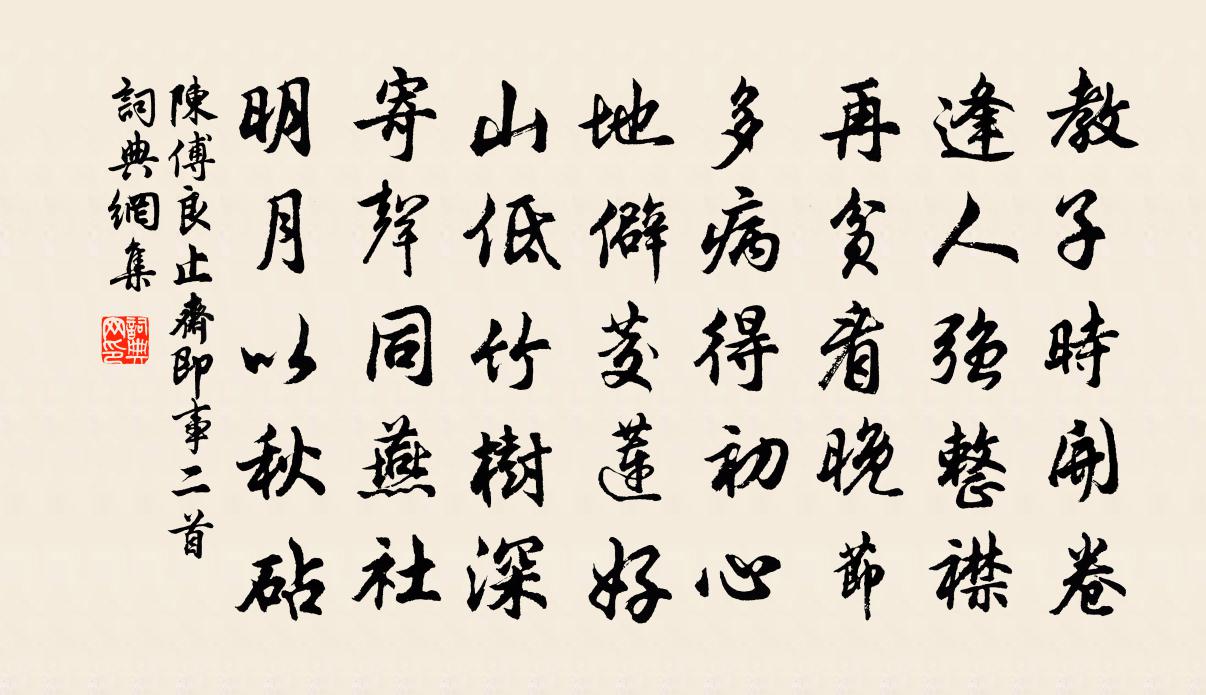 教子時開卷
逢人强整襟
再貧看晚節
多病得初心
地僻芰蓮好
山低竹樹深
寄聲同燕社
明月以秋砧
陳傅良止齋即事二首
詞典網集
詞典
网印